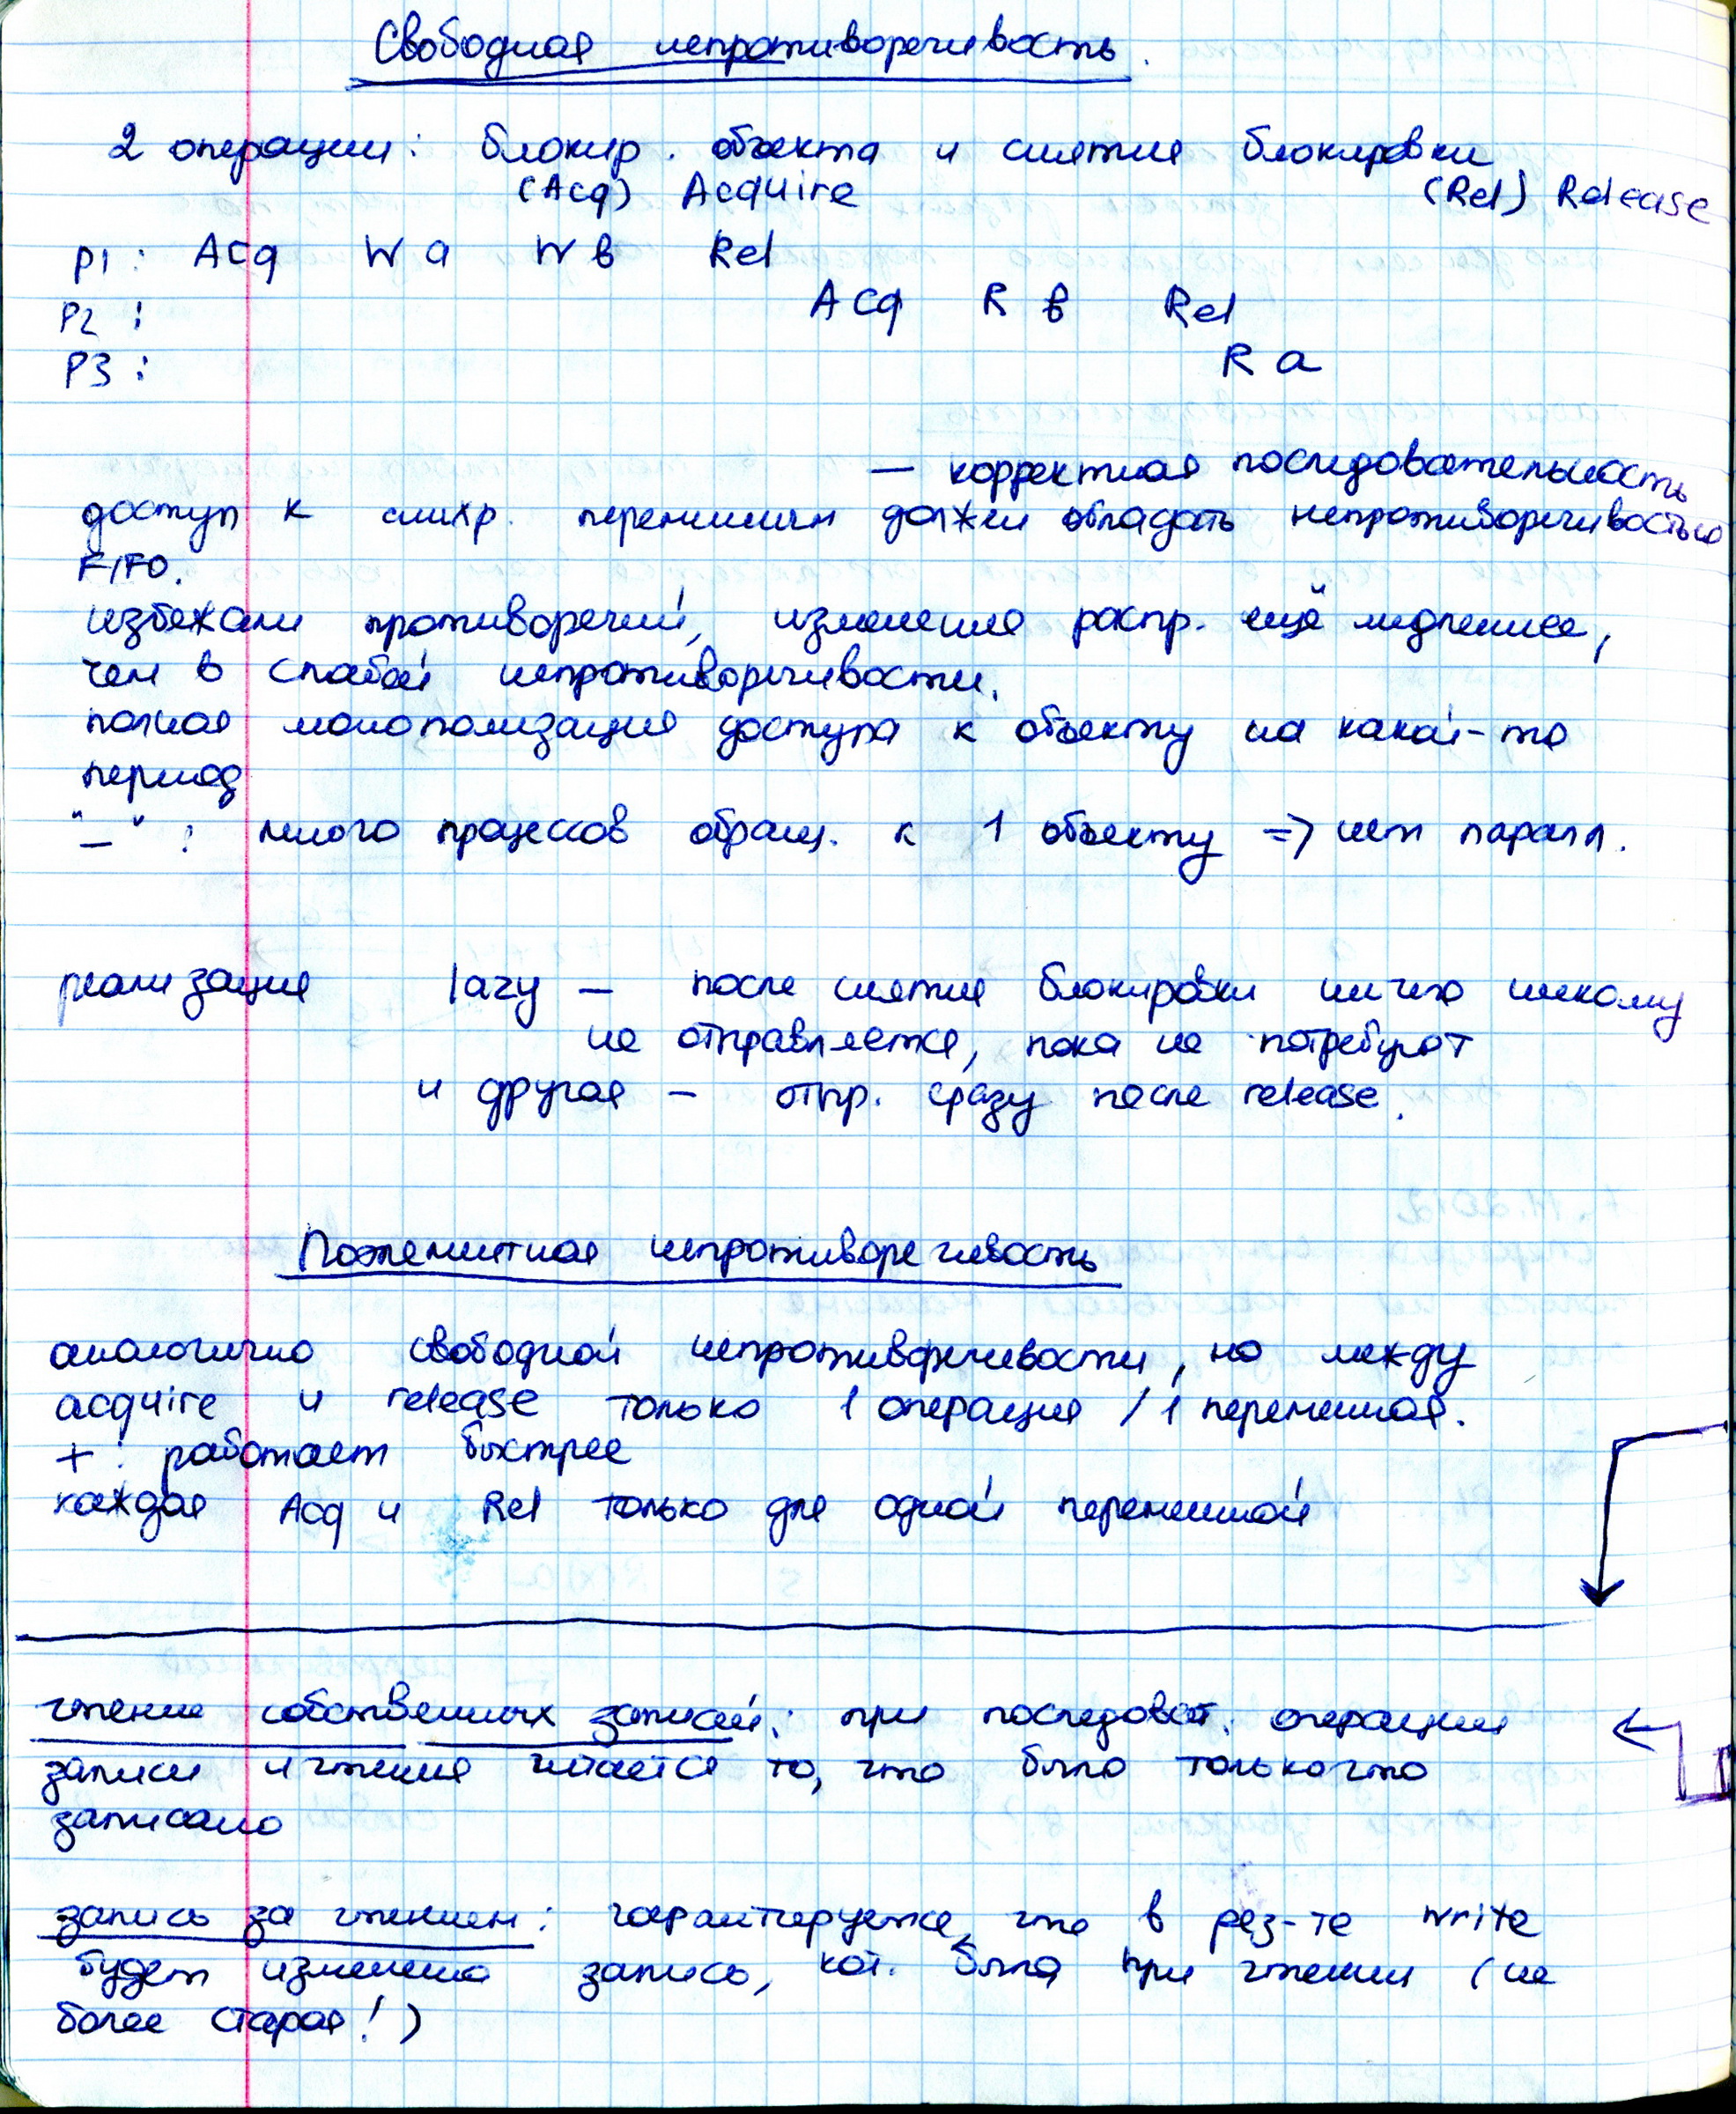 Свободная непротиворечивость.
2 операции: блокир. объекта и снятия блокировки
(Acq) Acquire (Rel) Release
P1: Acq W a W b Rel
P2: Acq R b Rel
P3: R a
— корректная последовательность
доступ к синхр. переменным должен обладать непротиворечивостью
FIFO.
избежали противоречий, изменения распр. ещё медленнее,
чем в слабой непротиворечивости.
полная монополизация доступа к объекту на какой-то
период
"—": много процессов обращ. к 1 объекту => нет паралл.
реализация lazy — после снятия блокировки ничего никому
не отправляется, пока не потребуют
и другая — отпр. сразу после release.
Поэлементная непротиворечивость
аналогично свободной непротиворечивости, но между
acquire и release только 1 операция / 1 переменная.
+: работает быстрее
каждая Acq и Rel только для одной переменной
чтение собственных записей: при последоват. операции
записи и чтения читается то, что было только что
записано
запись за чтением: гарантируется, что в рез-те write
будет изменена запись, кот. была при чтении (не
более старая!)